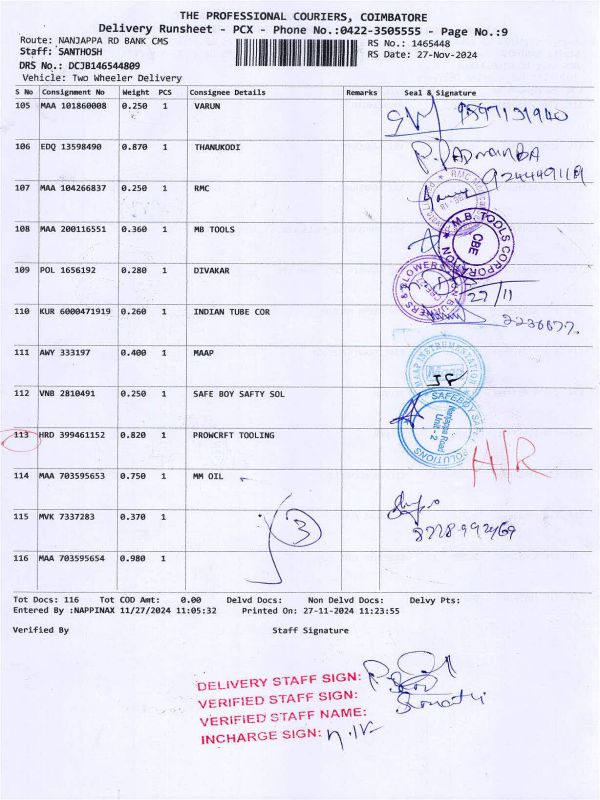 THE PROFESSIONAL COURIERS, COIMBATORE
Delivery Runsheet - PCX - Phone No.:0422-3505555 - Page No.:9
Route: NANJAPPA RD BANK CMS RS No.: 1465448
Staff: SANTHOSH RS Date: 27-Nov-2024
DRS No.: DCJB146544809
Vehicle: Two Wheeler Delivery
S No Consignment No Weight PCS Consignee Details Remarks Seal & Signature
105 MAA 101860008 0.250 1 VARUN
106 EDQ 13598490 0.870 1 THANUKODI
107 MAA 104266837 0.250 1 RMC
RMC
108 MAA 200116551 0.360 1 MB TOOLS
M.B. TOOLS CORPORATION
CBE
109 POL 1656192 0.280 1 DIVAKAR
27/11
110 KUR 6000471919 0.260 1 INDIAN TUBE COR
111 AWY 333197 0.400 1 MAAP
MAAP INSTRUMENTATION
112 VNB 2810491 0.250 1 SAFE BOY SAFTY SOL
SAFEBOY SAFETY SOLUTIONS
Nanjappa Road
Unit - 2
113 HRD 399461152 0.820 1 PROWCRFT TOOLING
H/R
114 MAA 703595653 0.750 1 MM OIL
115 MVK 7337283 0.370 1
3
116 MAA 703595654 0.980 1
Tot Docs: 116 Tot COD Amt: 0.00 Delvd Docs: Non Delvd Docs: Delvy Pts:
Entered By :NAPPINAX 11/27/2024 11:05:32 Printed On: 27-11-2024 11:23:55
Verified By Staff Signature
DELIVERY STAFF SIGN:
VERIFIED STAFF SIGN:
VERIFIED STAFF NAME:
INCHARGE SIGN: